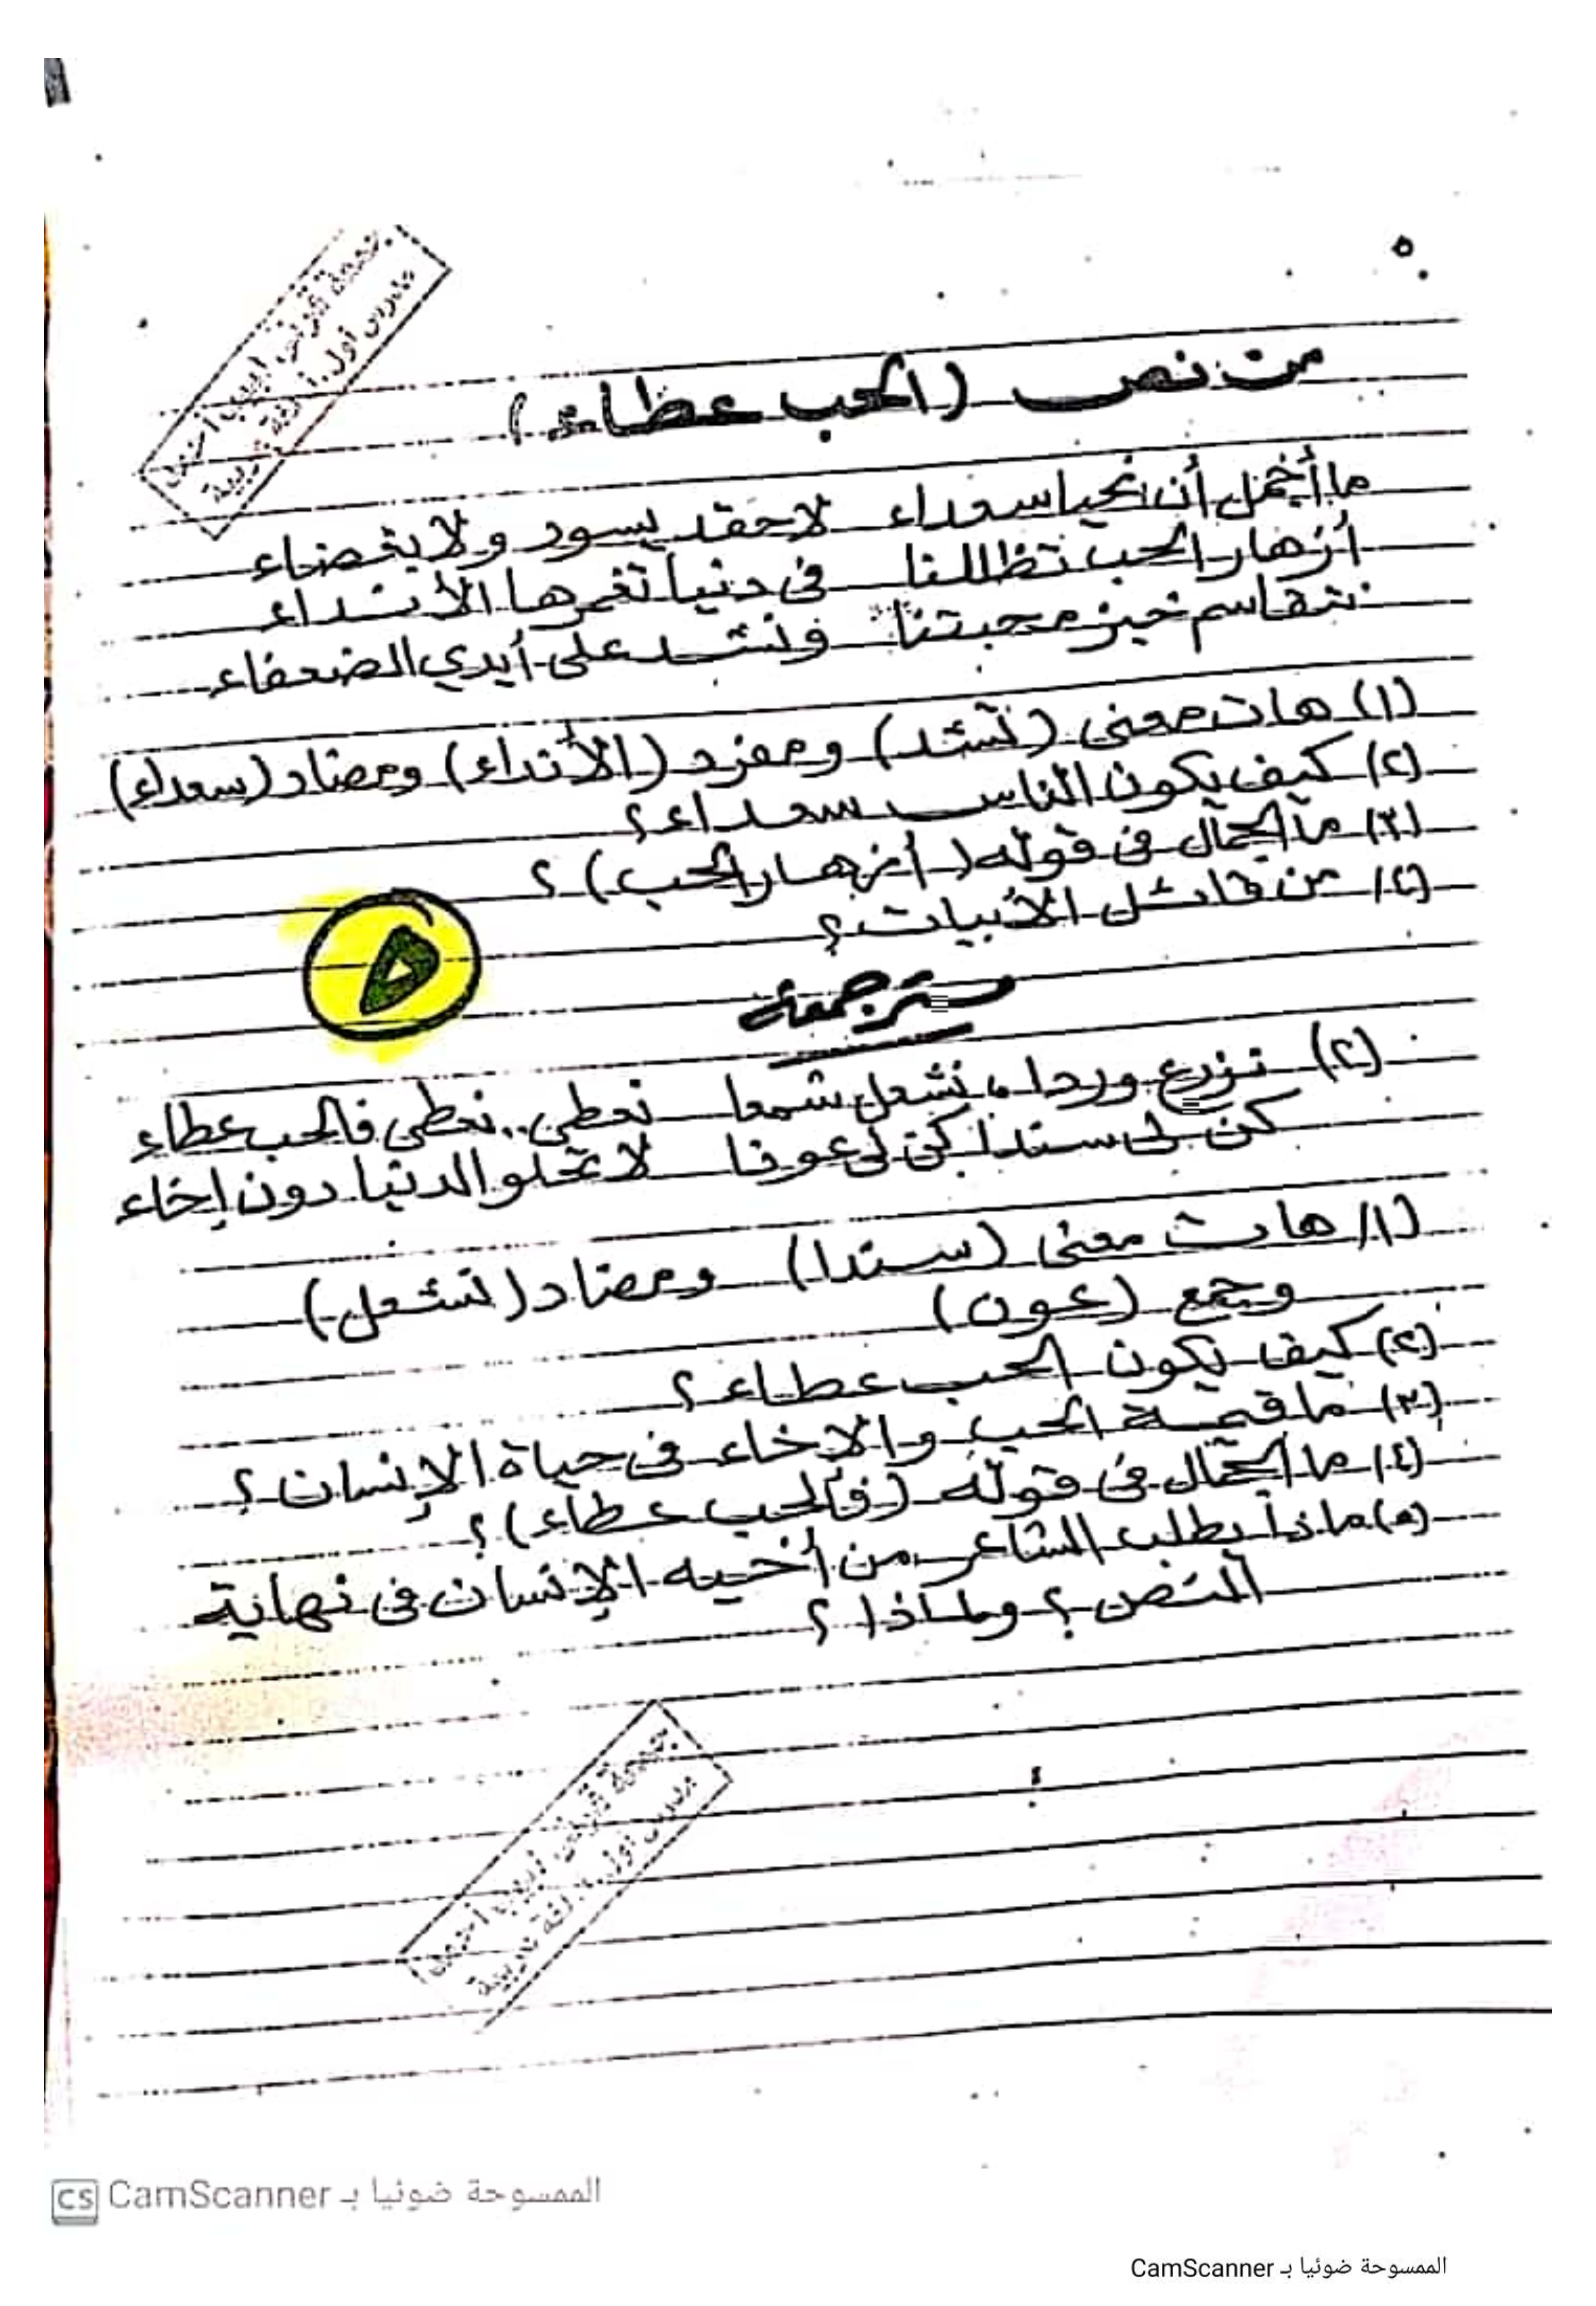 ٥
من نص (الحب عطاء)
ما أجمل أن نحيا سعداء لا حقد يسود ولا بغضاء
أزهار الحب تظللنا فى دنيا تغمرها الأنداء
نتقاسم خبز محبتنا ونشد على أيدي الضعفاء
(١) هات معنى (نشد) ومفرد (الأنداء) ومضاد (سعداء)
(٢) كيف يكون الناس سعداء؟
(٣) ما الجمال فى قوله (أزهار الحب)؟
(٤) من قائل الأبيات؟
٥
(٢) نزرع وردا، نشعل شمعا نعطى.. نعطى فالحب عطاء
كن لى سندا كن لى عونا لا تحلو الدنيا دون إخاء
(١) هات معنى (سندا) ومضاد (نشعل)
وجمع (عون)
(٢) كيف يكون الحب عطاء؟
(٣) ما قيمة الحب والإخاء فى حياة الإنسان؟
(٤) ما الجمال فى قوله (فالحب عطاء)؟
(٥) ماذا يطلب الشاعر من أخيه الإنسان فى نهاية
النص؟ ولماذا؟
CS الممسوحة ضوئيا بـ CamScanner
الممسوحة ضوئيا بـ CamScanner